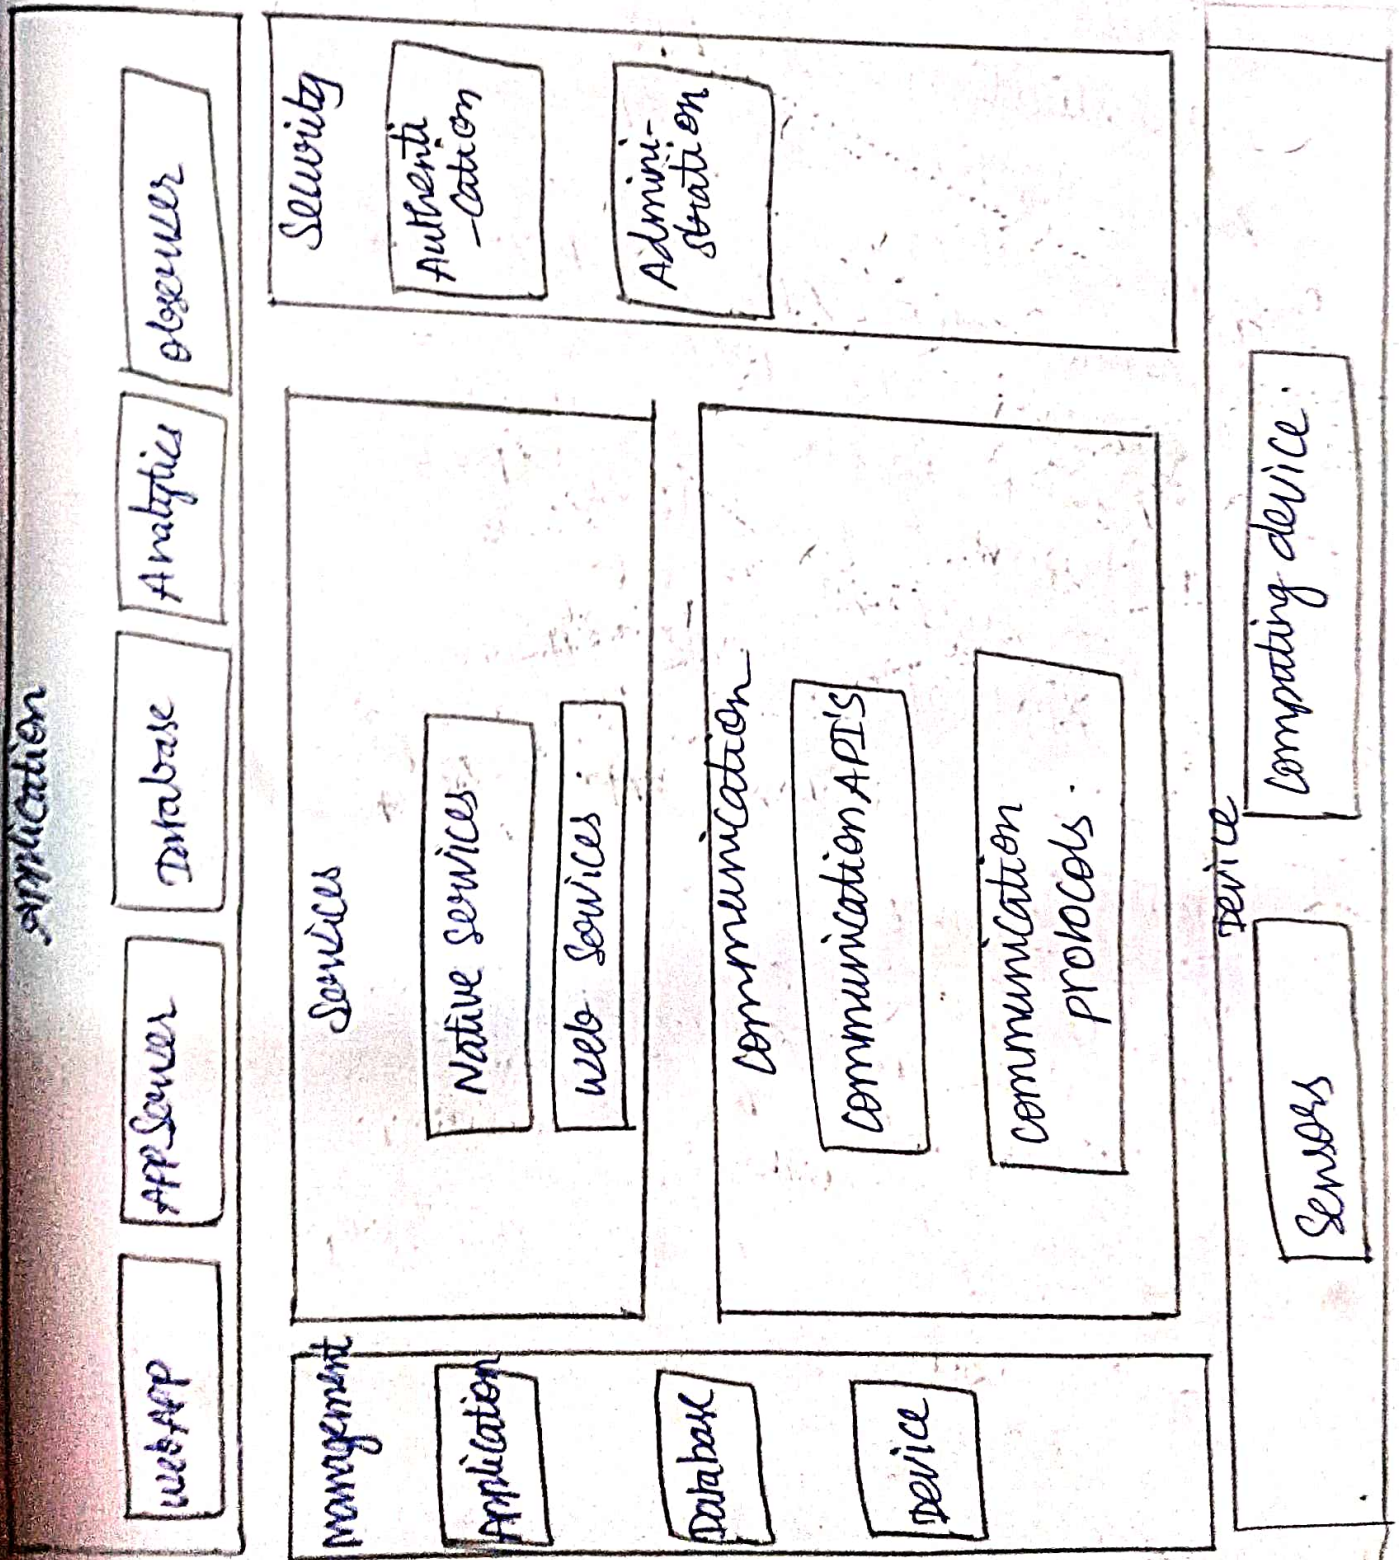 Application
Web APP
APP Server
Database
Analytics
Observer
Management
Application
Database
Device
Services
Native Services
Web Services.
Communication
Communication API'S
Communication
protocols.
Security
Authenti
-cation
Admini-
stration
Device
Sensors
Computing device.